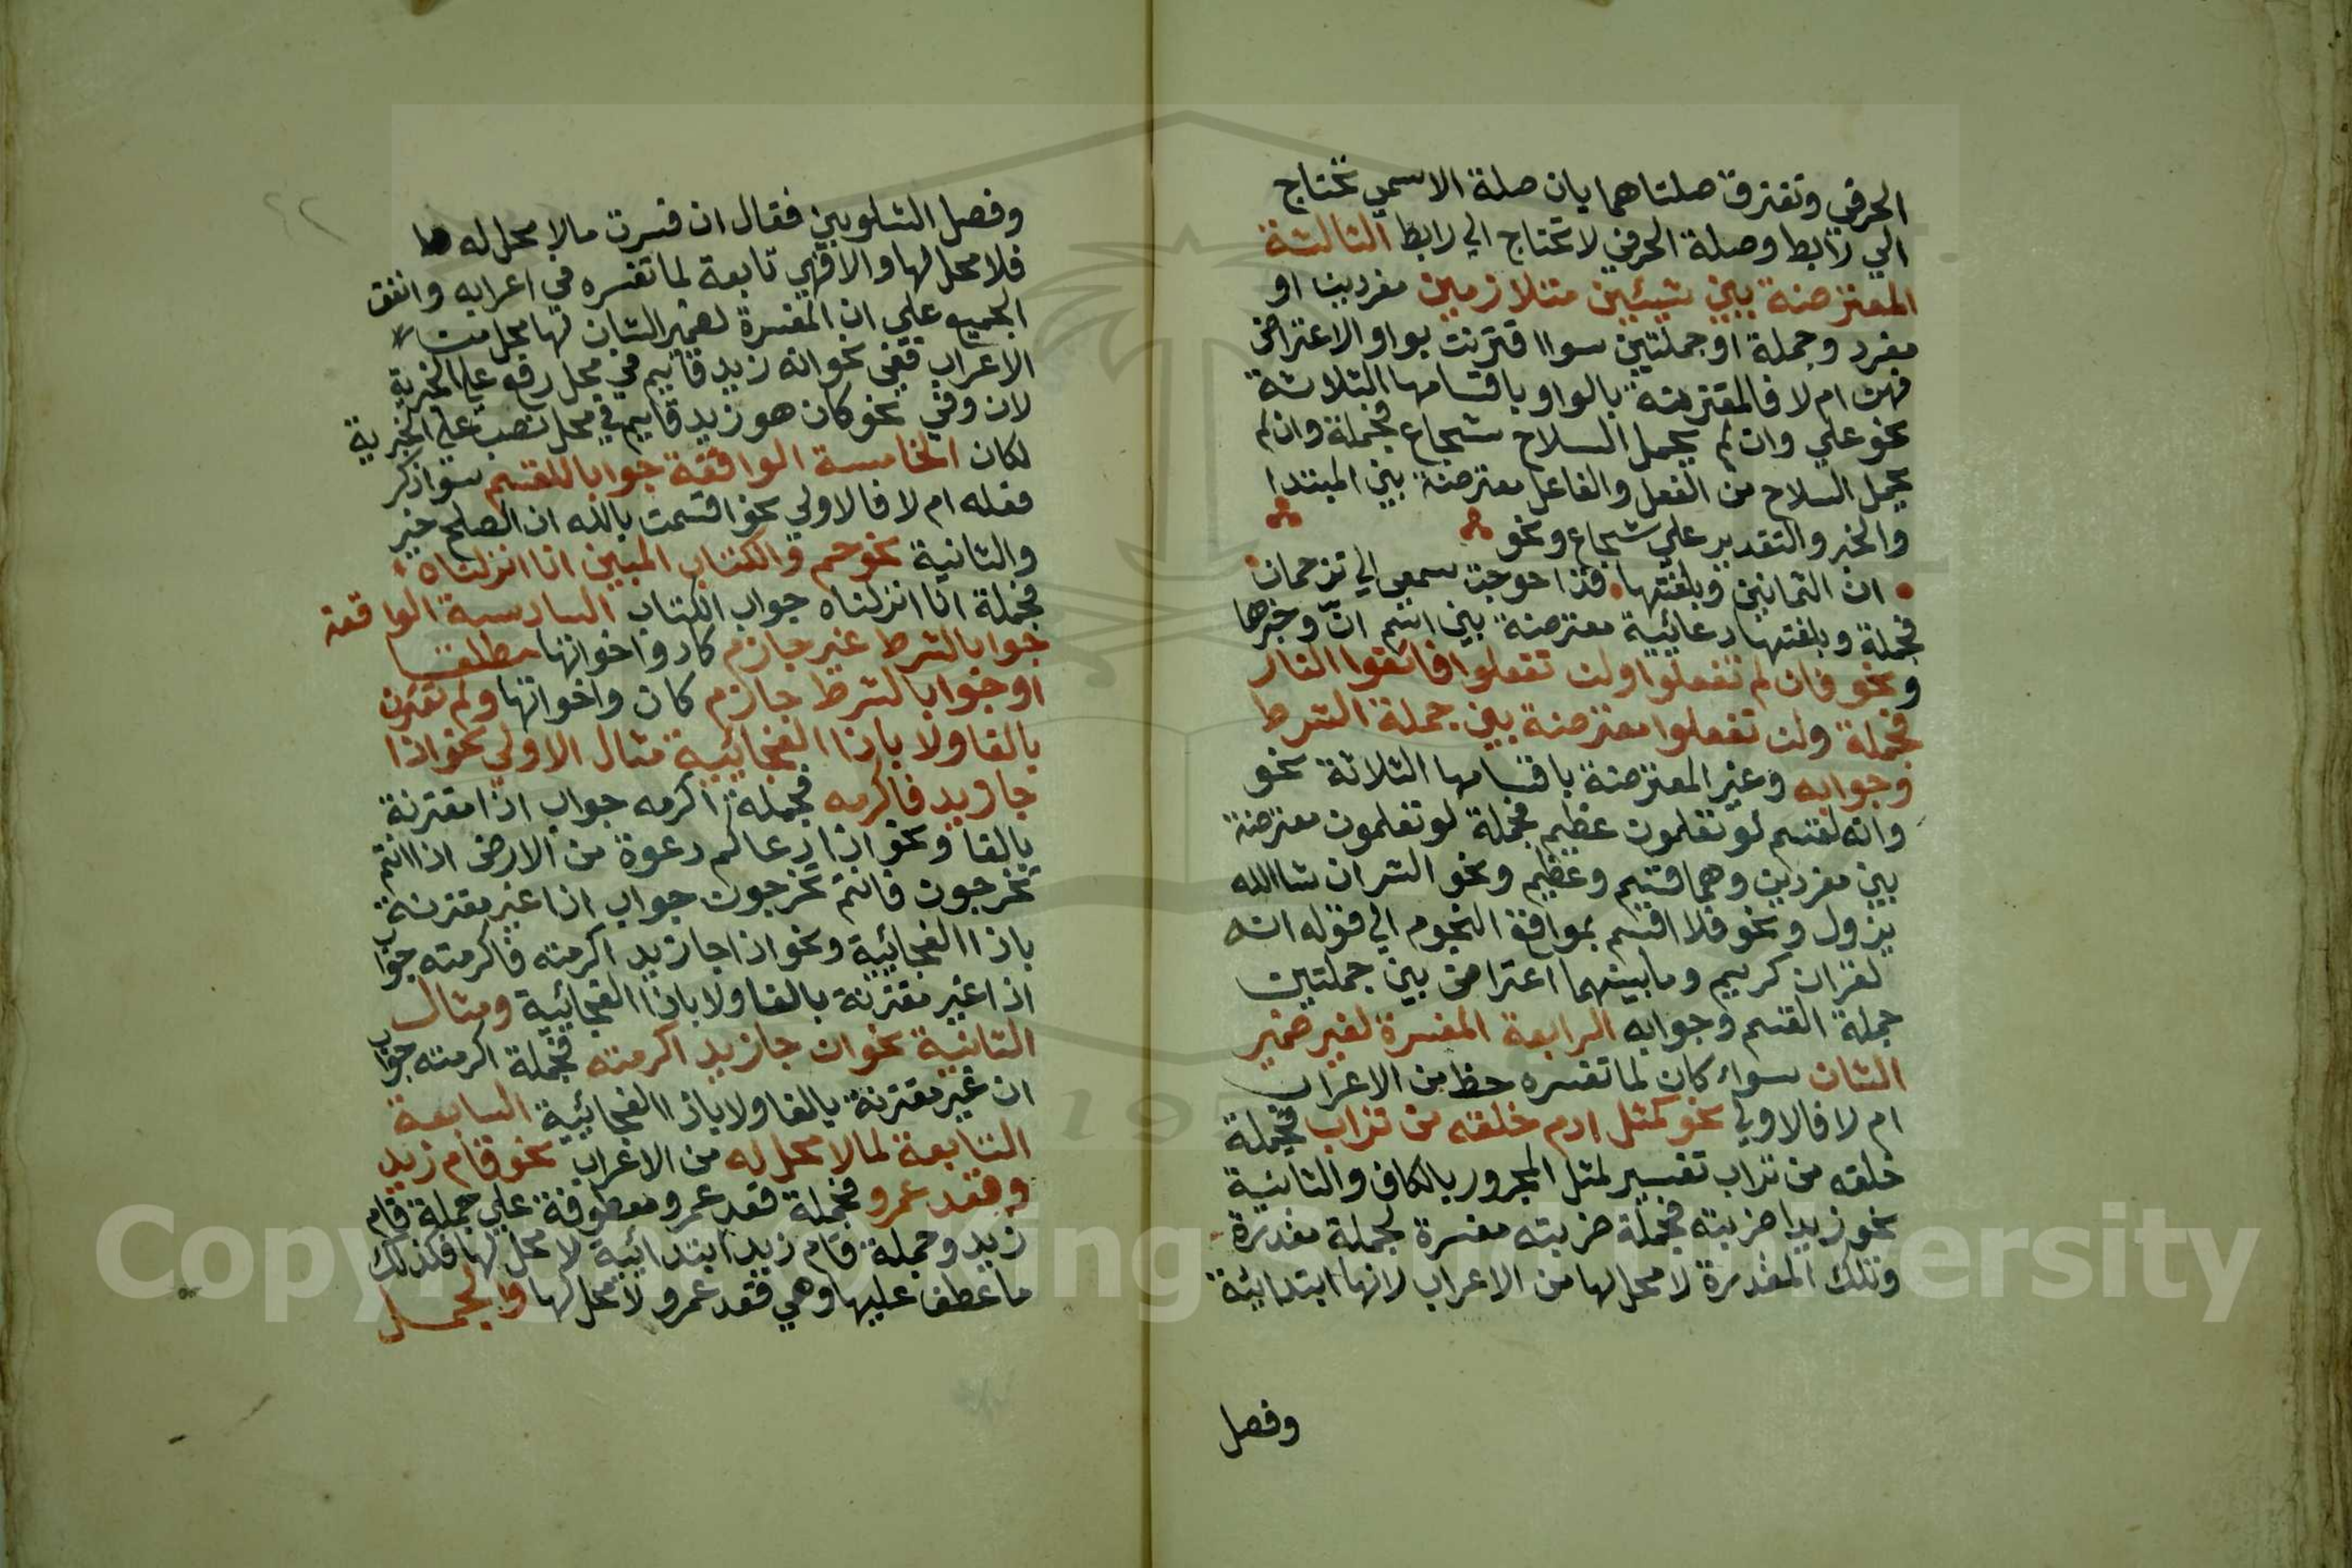 الحرفي وتفترق صلتاهما بان صلة الاسمي تحتاج
الي رابط وصلة الحرفي لا تحتاج الي رابط الثالثة
المعترضة بين شيئين متلازمين مفردين او
مفرد وجملة او جملتين سوا اقترنت بواو الاعتراض
فهن ام لا فالمقترنة بالواو باقسامها الثلاثة
نحو علي وان لم يحمل السلاح شجاع فجملة وان لم
يحمل السلاح من الفعل والفاعل معترضة بين المبتدا
والخبر والتقدير علي شجاع ونحو
ان الثمانين وبلغتها قد احوجت سمعي الي ترجمان
فجملة وبلغتها دعائية معترضة بين اسم ان وخبرها
ونحو فان لم تفعلوا ولن تفعلوا فاتقوا النار
فجملة ولن تفعلوا معترضة بين جملة الشرط
وجوابه وغير المعترضة باقسامها الثلاثة نحو
وانه لقسم لو تعلمون عظيم فجملة لو تعلمون معترضة
بين مفردين وهما قسم وعظيم ونحو الشر ان شا الله
يزول ونحو فلا اقسم بمواقع النجوم الي قوله انه
لقران كريم وما بينهما اعتراض بين جملتين
جملة القسم وجوابه الرابعة المفسرة لغير ضمير
الشان سواء كان لما تفسره حظ من الاعراب
ام لا فالاولي نحو كمثل ادم خلقه من تراب فجملة
خلقه من تراب تفسير لمثل المجرور بالكاف والثانية
نحو زيدا ضربته فجملة ضربته مفسرة لجملة مقدرة
وتلك المقدرة لا محل لها من الاعراب لانها ابتدائية
وفصل
وفصل الشلوبين فقال ان فسرت ما لا محل له
فلا محل لها والا فهي تابعة لما تفسره في اعرابه واتفق
الجميع علي ان المفسرة لضمير الشان لها محل من
الاعراب ففي نحو انه زيد قايم في محل رفع علي الخبرية
لان وفي نحو كان هو زيد قايم في محل نصب علي الخبرية
لكان الخامسة الواقعة جوابا للقسم سوا ذكر
فعله ام لا فالاولي نحو اقسمت بالله ان الصلح خير
والثانية نحو حم والكتاب المبين انا انزلناه
فجملة انا انزلناه جواب الكتاب السادسة الواقعة
جوابا لشرط غير جازم كاد واخواتها مطلقا
او جوابا لشرط جازم كان واخواتها ولم تقترن
بالفا ولا باذا الفجائية مثال الاولي نحو اذا
جا زيد فاكرمه فجملة اكرمه جواب اذا مقترنة
بالفا ونحو اذا دعاكم دعوة من الارض اذا انتم
تخرجون فانتم تخرجون جواب اذا غير مقترنة
باذا الفجائية ونحو اذا جا زيد اكرمته فاكرمته جواب
اذا غير مقترنة بالفا ولا باذا الفجائية ومثال
الثانية نحو ان جا زيد اكرمته فجملة اكرمته جواب
ان غير مقترنة بالفا ولا باذا الفجائية السابعة
التابعة لما لا محل له من الاعراب نحو قام زيد
وقعد عمرو فجملة قعد عمرو معطوفة علي جملة قام
زيد وجملة قام زيد ابتدائية لا محل لها فكذلك
ما عطف عليها وهي قعد عمرو لا محل لها والجمل
Copyright © King Saud University